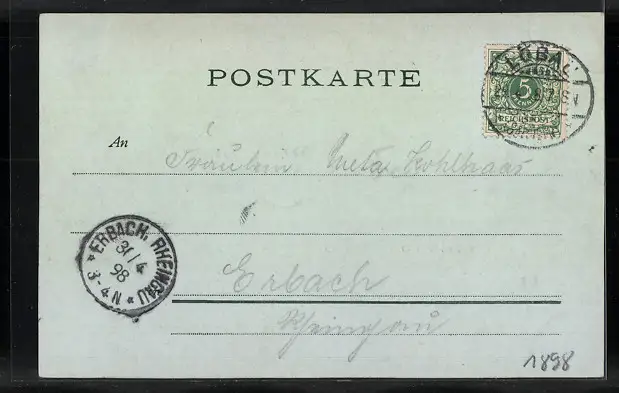 POSTKARTE
LÖBAU
5
REICHSPOST
An
Fräulein Meta Kohlhaas
ERBACH. RHEINGAU
31/4
98
3-4N
Erbach
Rheingau
1898